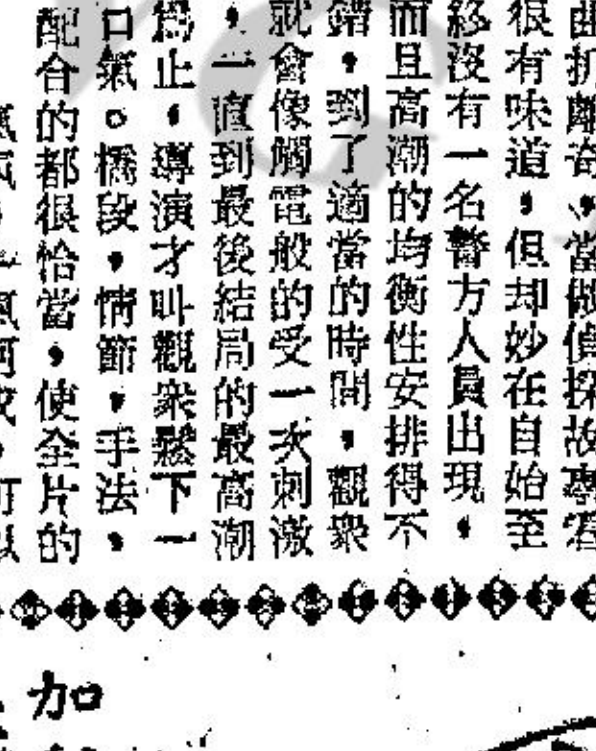 曲折離奇、當做偵探故專看
很有味道，但却妙在自始至
終沒有一名警方人員出現，
而且高潮的均衡性安排得不
錯，到了適當的時間，觀衆
就會像觸電般的受一次刺激
，一直到最後結局的最高潮
爲止，導演才叫觀衆鬆下一
口氣。橋段，情節，手法，
配合的都很恰當，使全片的
加